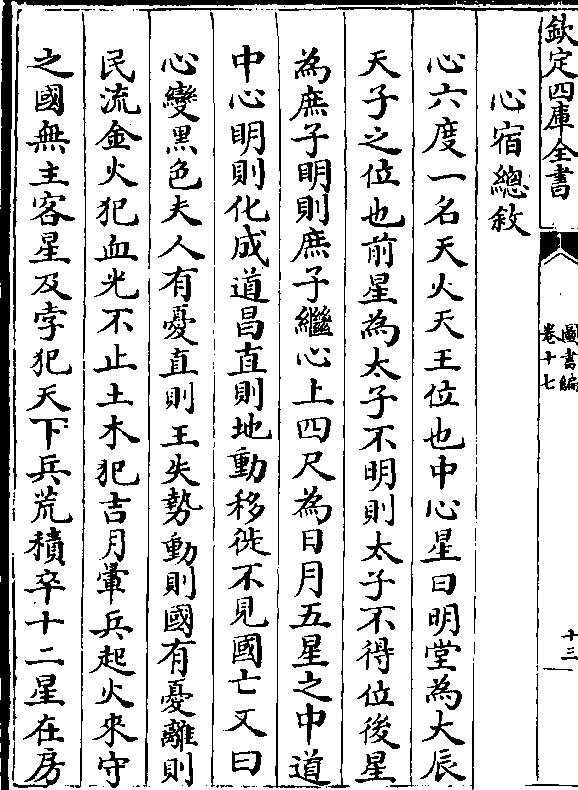 欽定四庫全書
圖書編
卷十七
十三
心宿總敘
心六度一名天火天王位也中心星曰明堂為大辰
天子之位也前星為太子不明則太子不得位後星
為庶子明則庶子繼心上四尺為日月五星之中道
中心明則化成道昌直則地動移徙不見國亡又曰
心變黑色夫人有憂直則王失勢動則國有憂離則
民流金火犯血光不止土木犯吉月暈兵起火來守
之國無主客星及孛犯天下兵荒積卒十二星在房